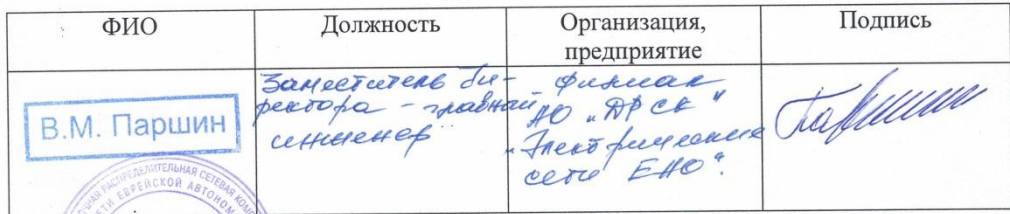 ФИО
Должность
Организация,
предприятие
Подпись
В.М. Паршин
Заместитель ди-
ректора – главный
инженер
Филиал
АО „ДРСК"
„Электрические
сети ЕАО".
Паршин
РАСПРЕДЕЛИТЕЛЬНАЯ СЕТЕВАЯ
СЕТИ ЕВРЕЙСКОЙ АВТОНОМ